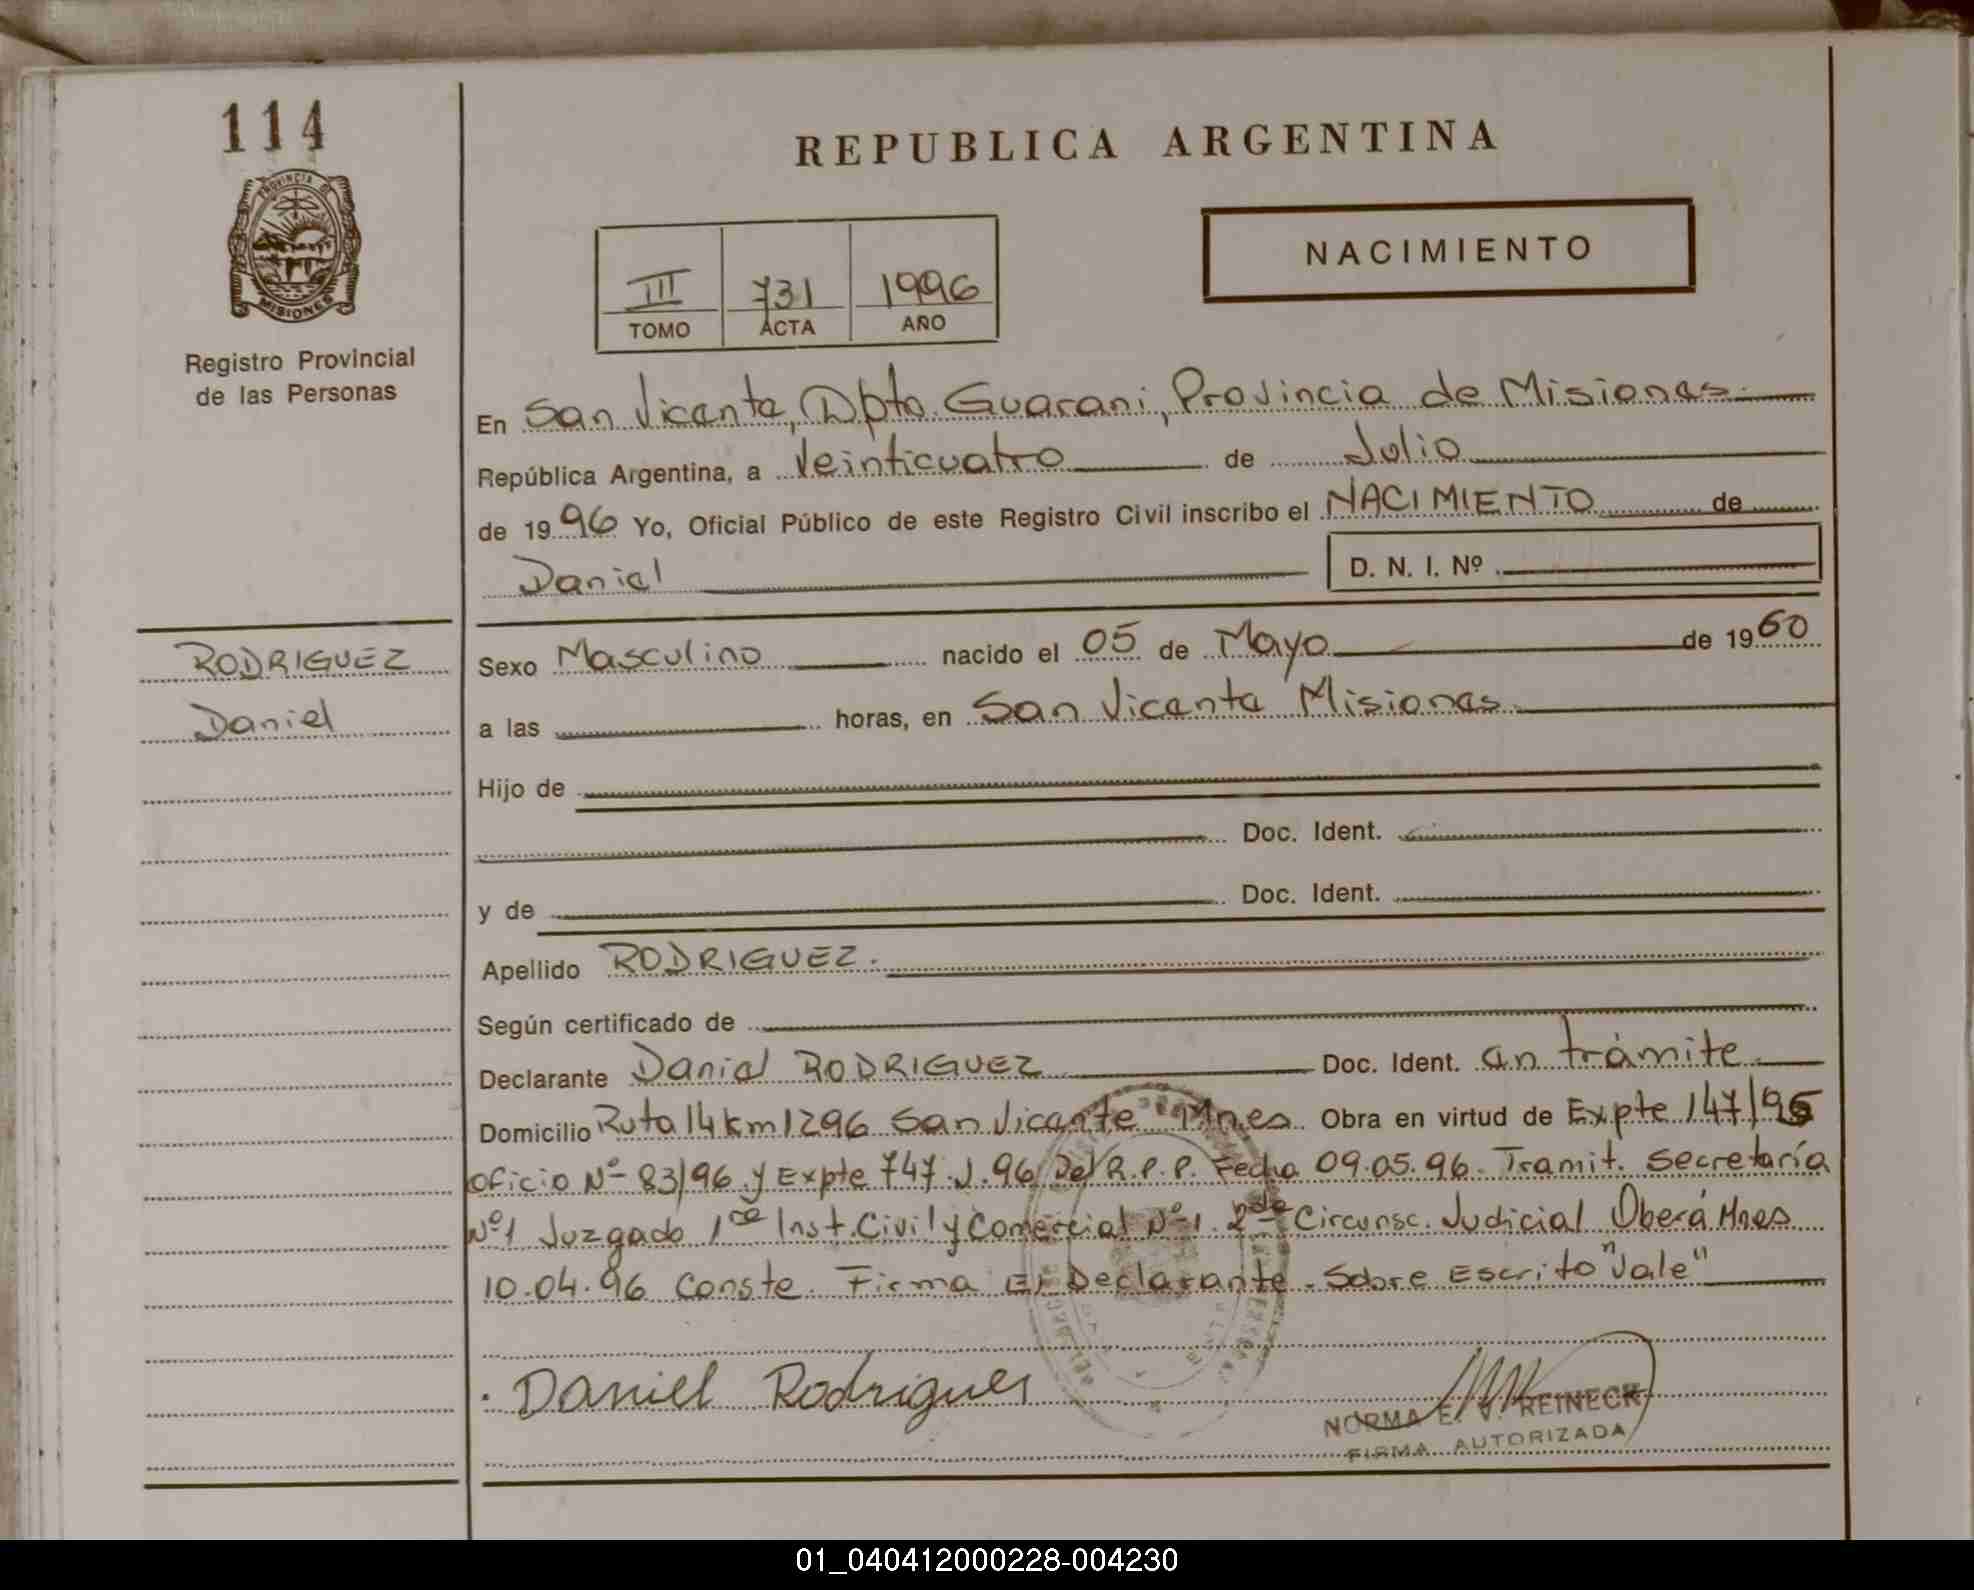 114
REPUBLICA ARGENTINA
PROVINCIA DE
MISIONES
NACIMIENTO
III 731 1996
TOMO ACTA AÑO
Registro Provincial
de las Personas
En San Vicente, Dpto. Guarani, Provincia de Misiones
República Argentina, a Veinticuatro de Julio
de 1996 Yo, Oficial Público de este Registro Civil inscribo el NACIMIENTO de
Daniel D. N. I. Nº
RODRIGUEZ
Daniel
Sexo Masculino nacido el 05 de Mayo de 1960
a las horas, en San Vicente Misiones
Hijo de
Doc. Ident.
y de Doc. Ident.
Apellido RODRIGUEZ.
Según certificado de
Declarante Daniel RODRIGUEZ Doc. Ident. en trámite
Domicilio Ruta 14 km 1296 San Vicente Mnes. Obra en virtud de Expte 147/96
Oficio Nº 83/96 y Expte 747.J.96 Del R.P.P. Fecha 09.05.96. Tramit. Secretaría
Nº1 Juzgado 1ra Inst. Civil y Comercial Nº1. 2da Circunsc. Judicial Oberá Mnes
10.04.96 Conste. Firma El Declarante. Sobre Escrito "Vale"
Daniel Rodrigues
NORMA E. V. REINECK
FIRMA AUTORIZADA
01_040412000228-004230